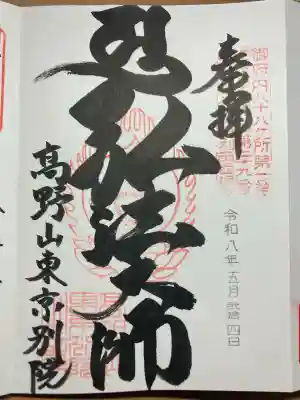 奉拝
御府内八十八ヶ所第一番
令和八年 五月 弐拾四日
弘法大師
高野山東京別院